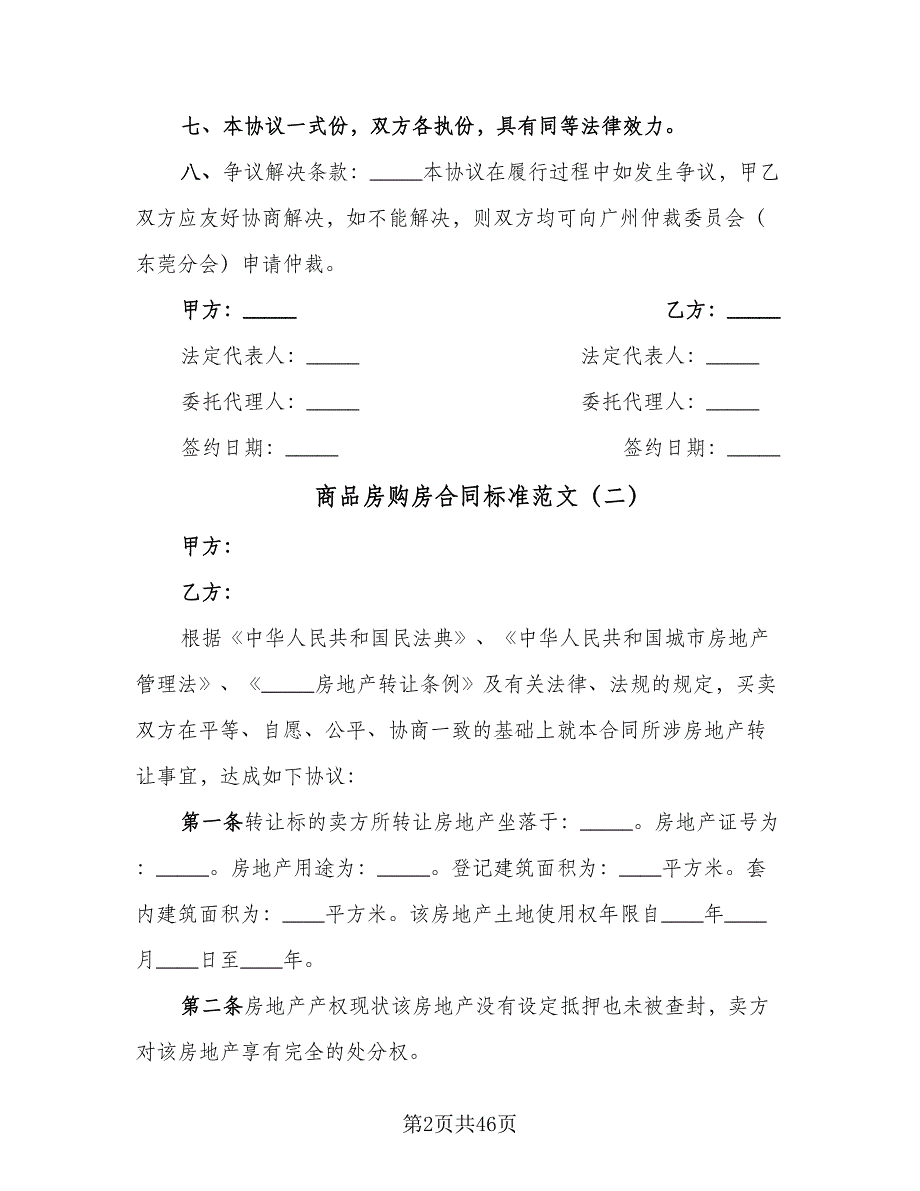 七、本协议一式份，双方各执份，具有同等法律效力。
八、争议解决条款：_____本协议在履行过程中如发生争议，甲乙
双方应友好协商解决，如不能解决，则双方均可向广州仲裁委员会（
东莞分会）申请仲裁。
甲方：_____ 乙方：_____
法定代表人：_____ 法定代表人：_____
委托代理人：_____ 委托代理人：_____
签约日期：_____ 签约日期：_____
商品房购房合同标准范文（二）
甲方：
乙方：
根据《中华人民共和国民法典》、《中华人民共和国城市房地产
管理法》、《_____房地产转让条例》及有关法律、法规的规定，买卖
双方在平等、自愿、公平、协商一致的基础上就本合同所涉房地产转
让事宜，达成如下协议：
第一条转让标的卖方所转让房地产坐落于：_____。房地产证号为
：_____。房地产用途为：_____。登记建筑面积为：____平方米。套
内建筑面积为：____平方米。该房地产土地使用权年限自____年____
月____日至____年。
第二条房地产产权现状该房地产没有设定抵押也未被查封，卖方
对该房地产享有完全的处分权。
第2页共46页